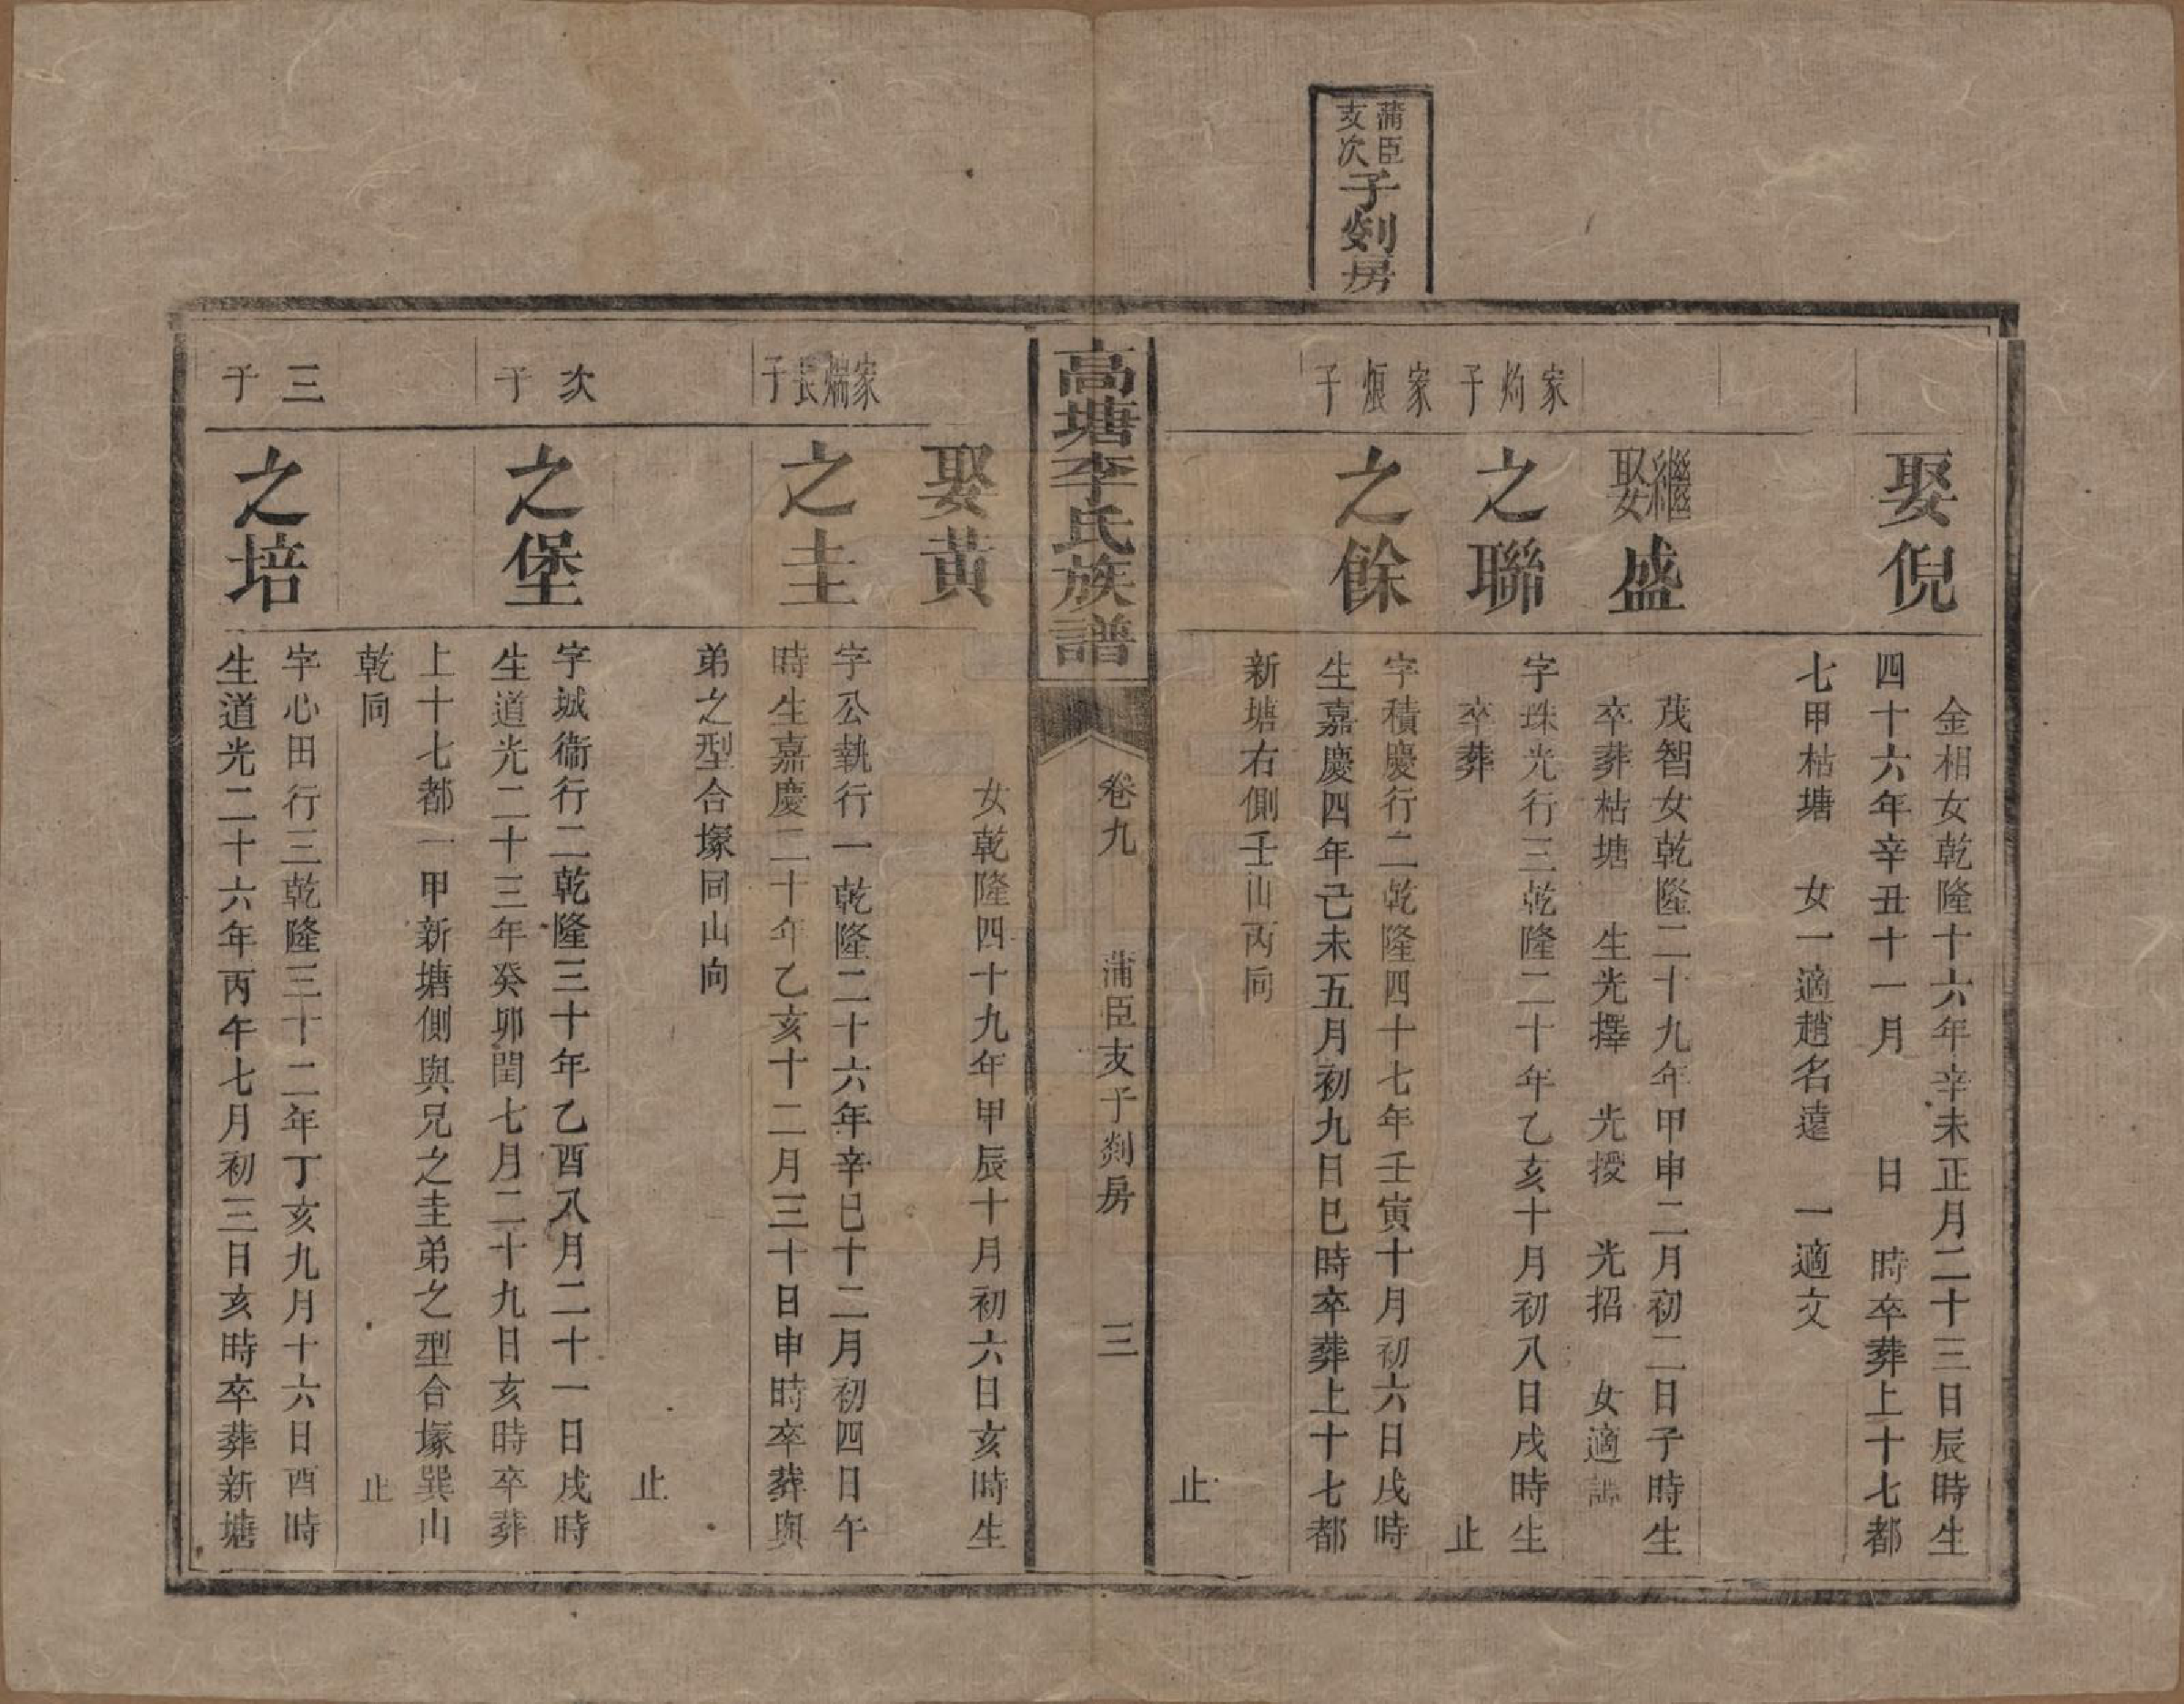 蒲臣
支次
子剡房
娶倪
金相女乾隆十六年辛未正月二十三日辰時生
四十六年辛丑十一月 日 時卒葬上十七都
七甲枯塘 女一適趙名遠 一適文
繼娶盛
茂智女乾隆二十九年甲申二月初二日子時生
卒葬枯塘 生光擇 光授 光招 女適譚
家灼子
之聯
字珠光行三乾隆二十年乙亥十月初八日戌時生
卒葬 止
家烺子
之餘
字積慶行二乾隆四十七年壬寅十月初六日戌時
生嘉慶四年己未五月初九日巳時卒葬上十七都
新塘右側壬山丙向
止
高塘李氏族譜
卷九 蒲臣支子剡房 三
娶黃
女乾隆四十九年甲辰十月初六日亥時生
家煓長子
之圭
字公執行一乾隆二十六年辛巳十二月初四日午
時生嘉慶二十年乙亥十二月三十日申時卒葬與
弟之型合塚同山向
止
次子
之堡
字城衛行二乾隆三十年乙酉八月二十一日戌時
生道光二十三年癸卯閏七月二十九日亥時卒葬
上十七都一甲新塘側與兄之圭弟之型合塚巽山
乾向 止
三子
之培
字心田行三乾隆三十二年丁亥九月十六日酉時
生道光二十六年丙午七月初三日亥時卒葬新塘